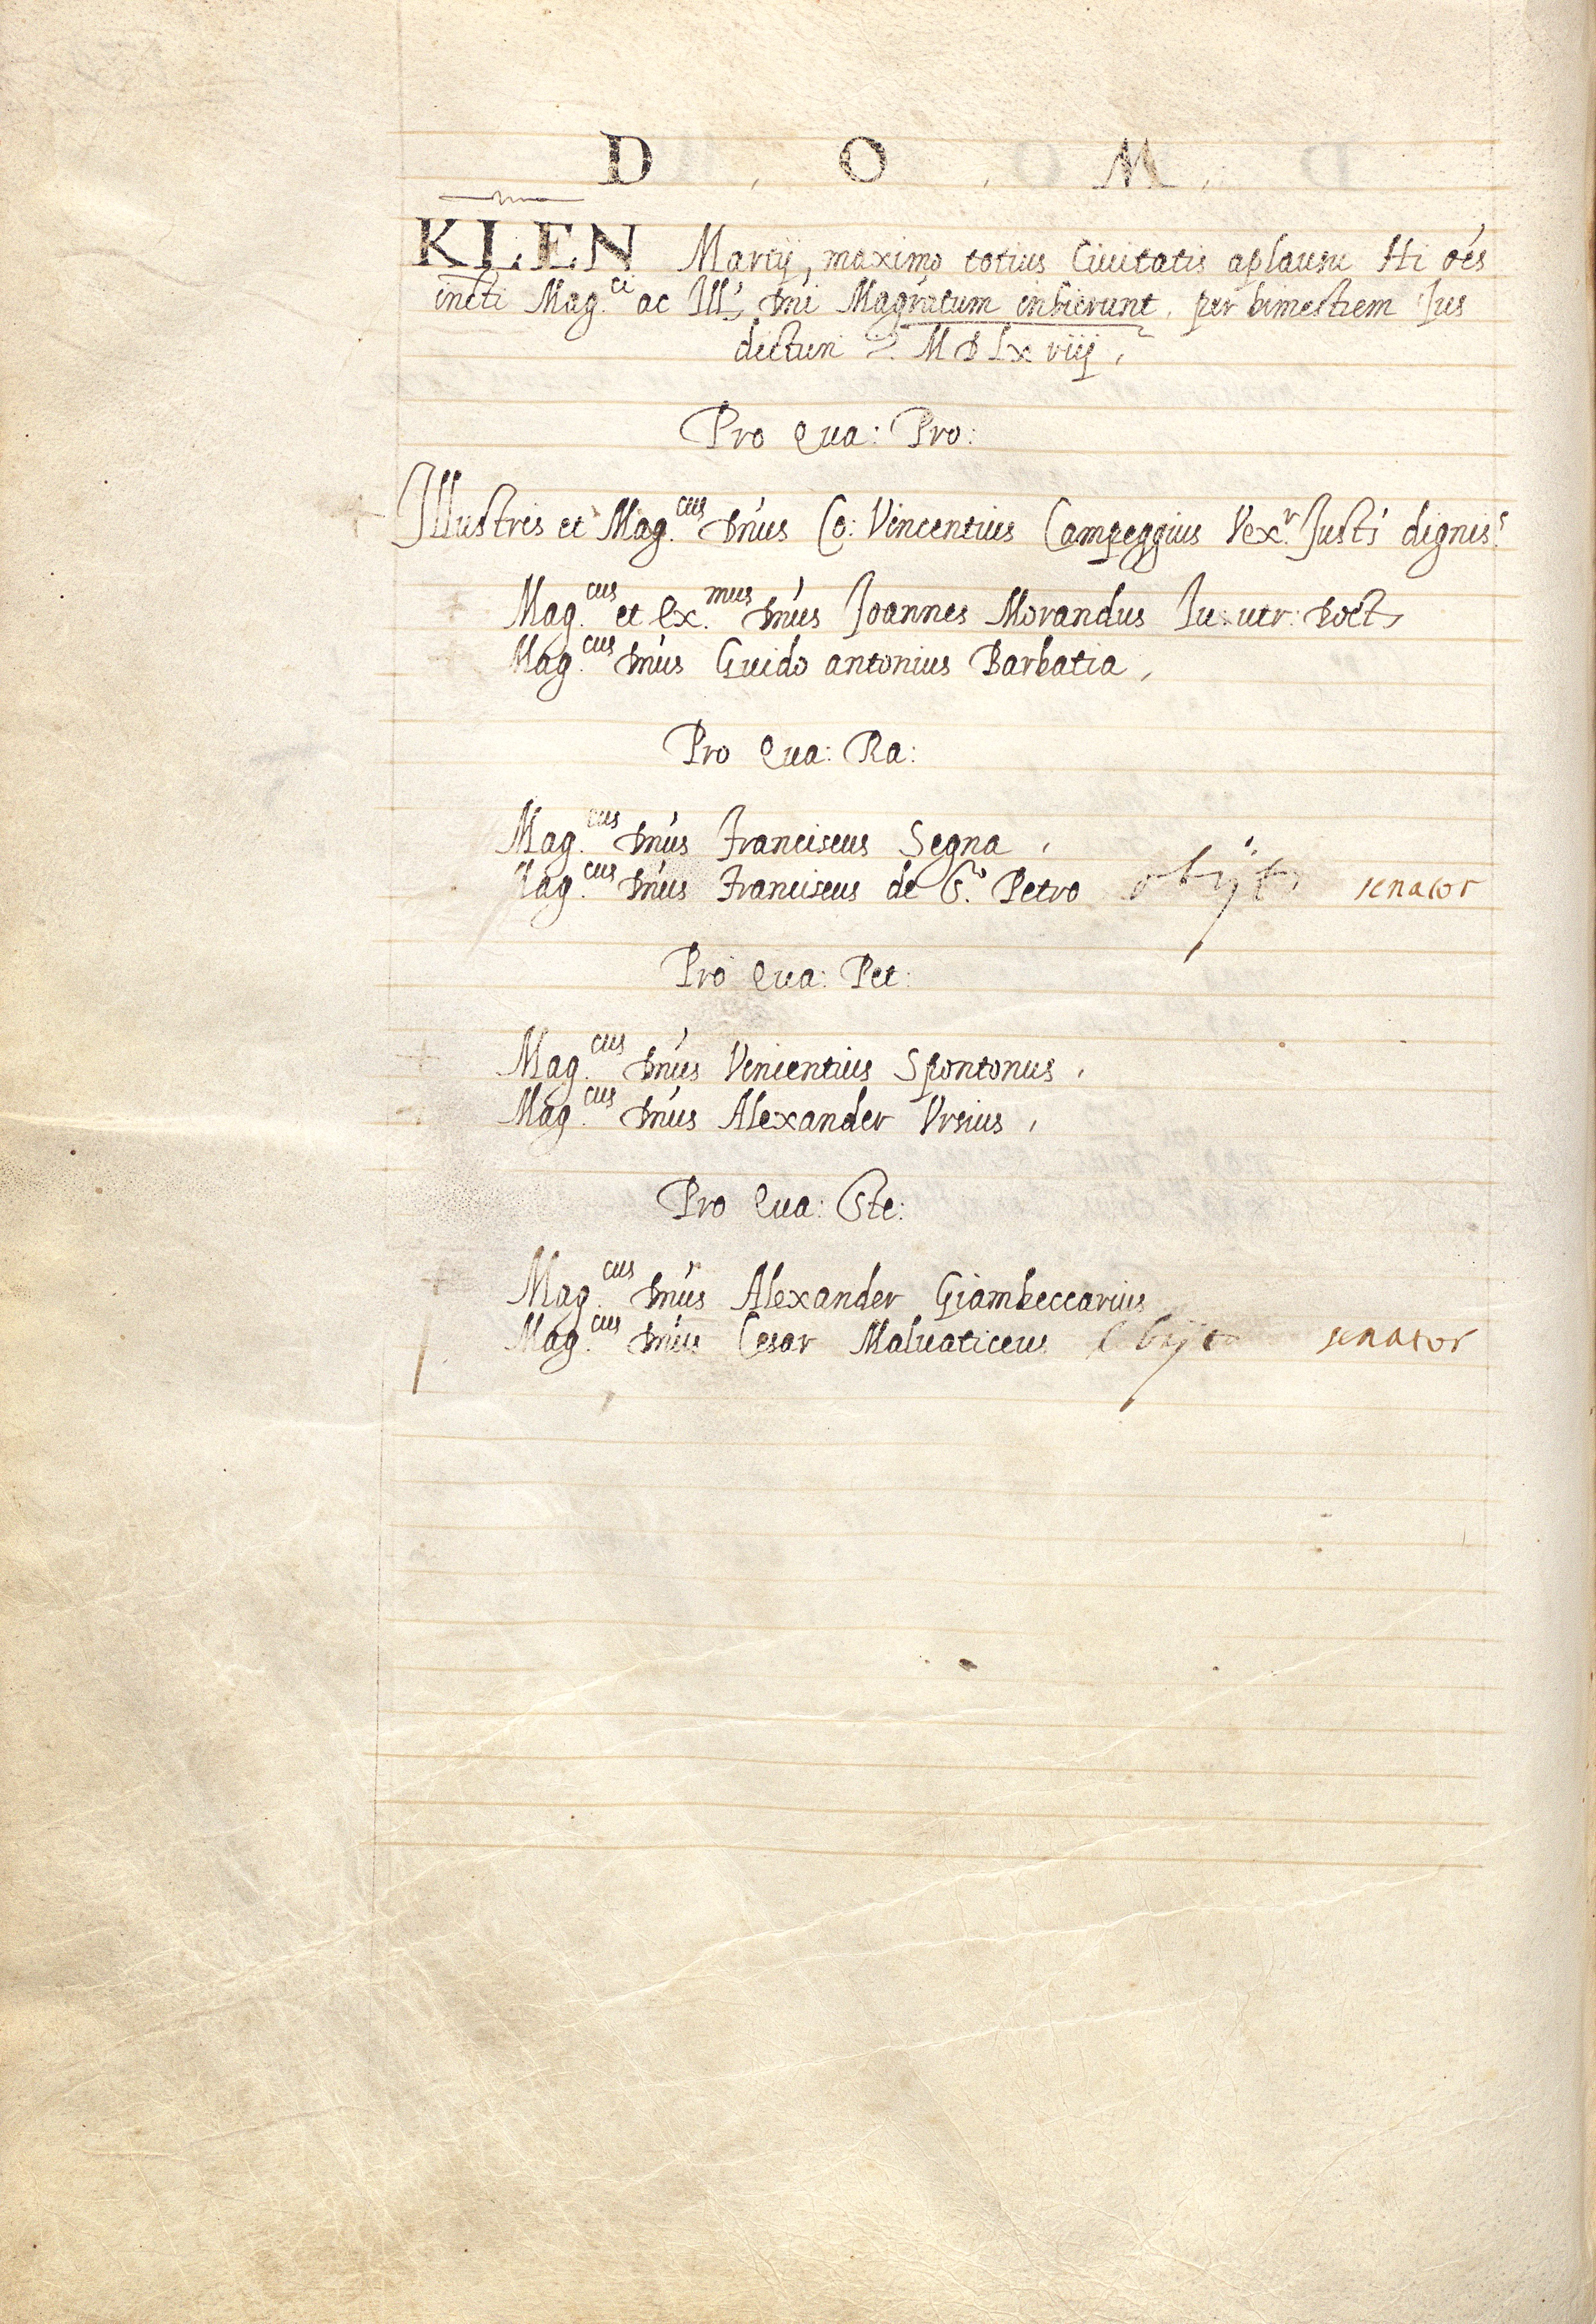 D . O . M .
KLEN Martij, maximo totius Ciuitatis aplausu Hi oẽs
incti Mag.ci ac Ill. dñi Magr̃atum inhierunt, per bimestrem Jus
dicturi MDLxviij,
Pro Qua: Pro:
Illustris et Mag.cus Dñus Co: Vincentius Campeggius Vex.r Justi dignis.s
Mag.cus et Ex.mus Dñus Joannes Morandus Iu. utr: Doct.
Mag.cus Dñus Guido antonius Barbatia,
Pro Qua: Ra:
Mag.cus Dñus Franciscus Segna,
Mag.cus Dñus Franciscus de S.to Petro obijt senator
Pro Qua: Pet:
Mag.cus Dñus Vincentius Spontonus,
Mag.cus Dñus Alexander Vrsius,
Pro Qua: Ste:
Mag.cus Dñus Alexander Giambeccarius
Mag.cus Dñus Cesar Maluaticeus obijt senator